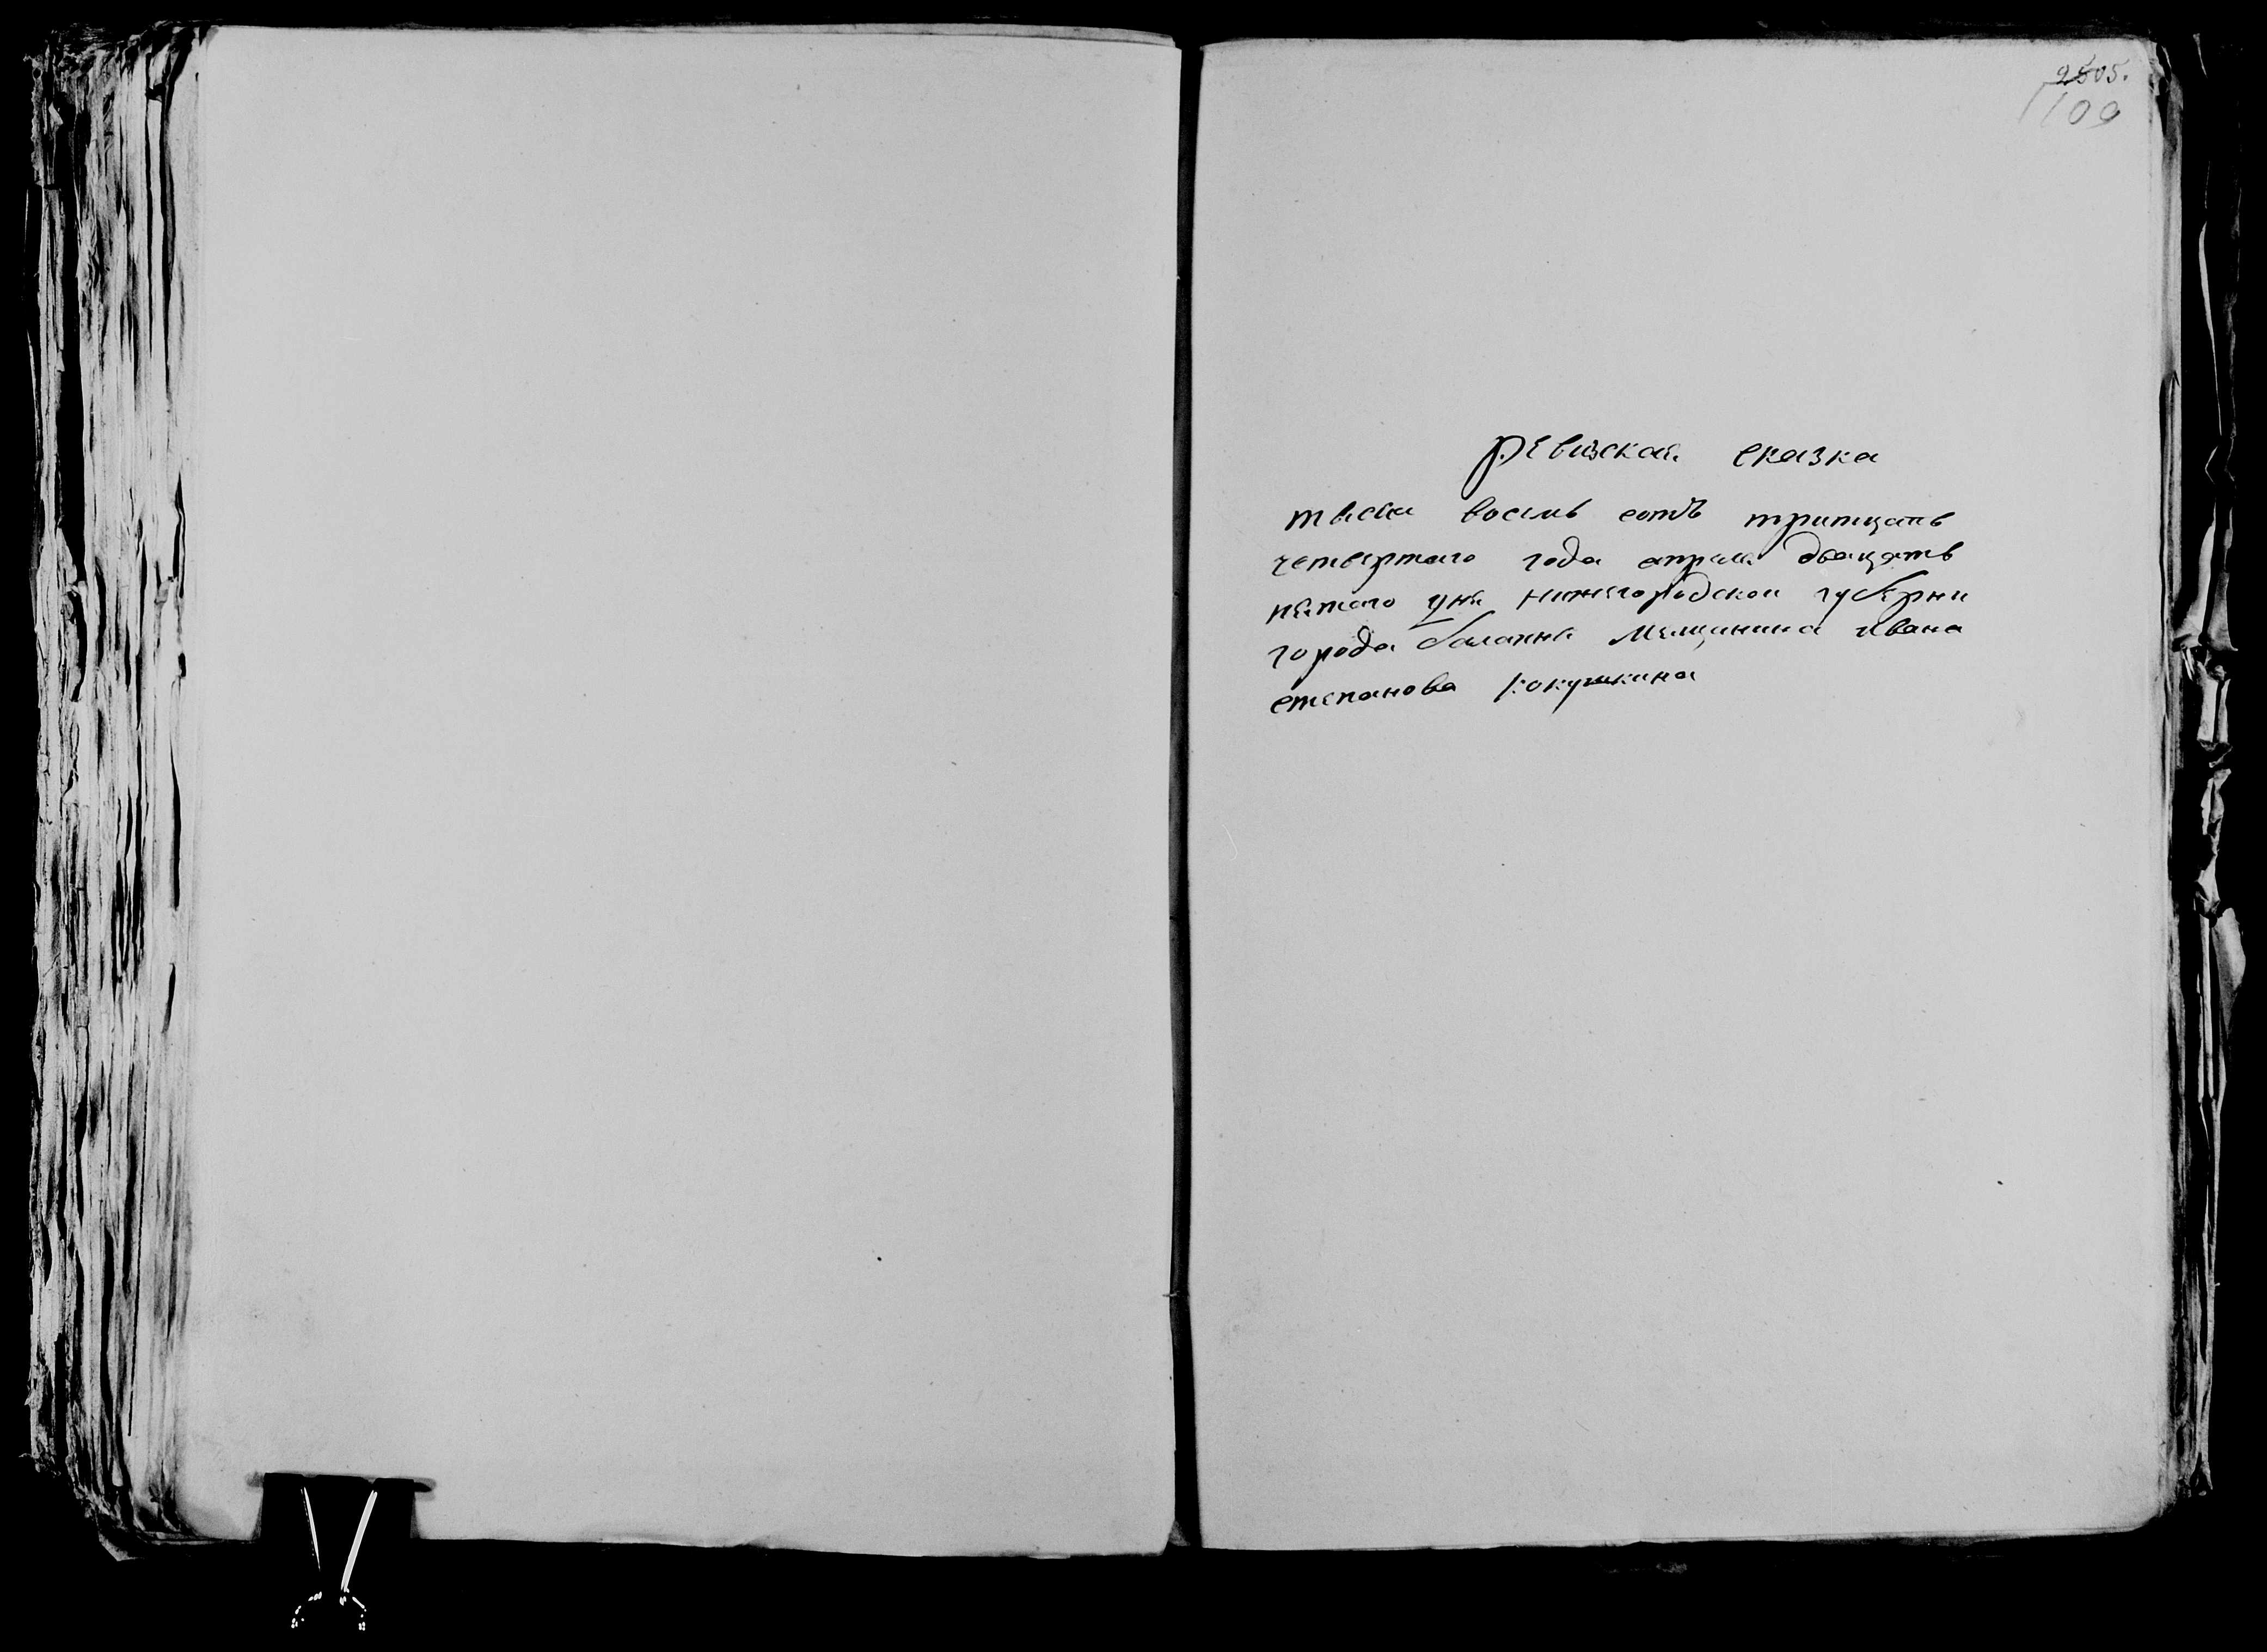 2505.
109
ревизская сказка
тысеча восемь сотъ тритцать
четвертаго года апреля двацать
пятого дня нижегородской губерни
города балахны мещанина ивана
степанова кокушкина